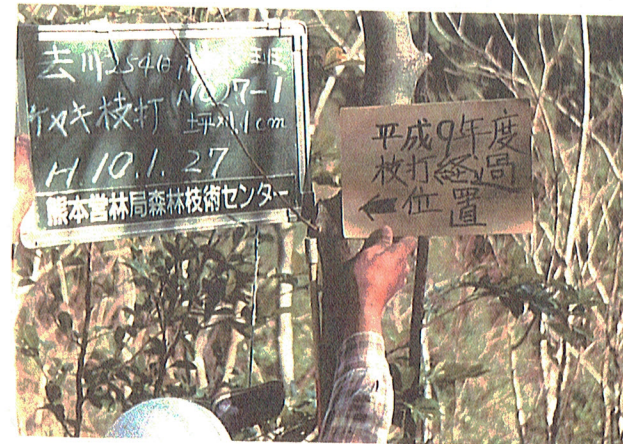 去川254は
ケヤキ枝打 No27-1
H10.1.27
熊本営林局森林技術センター
平成9年度
枝打経過
←位置